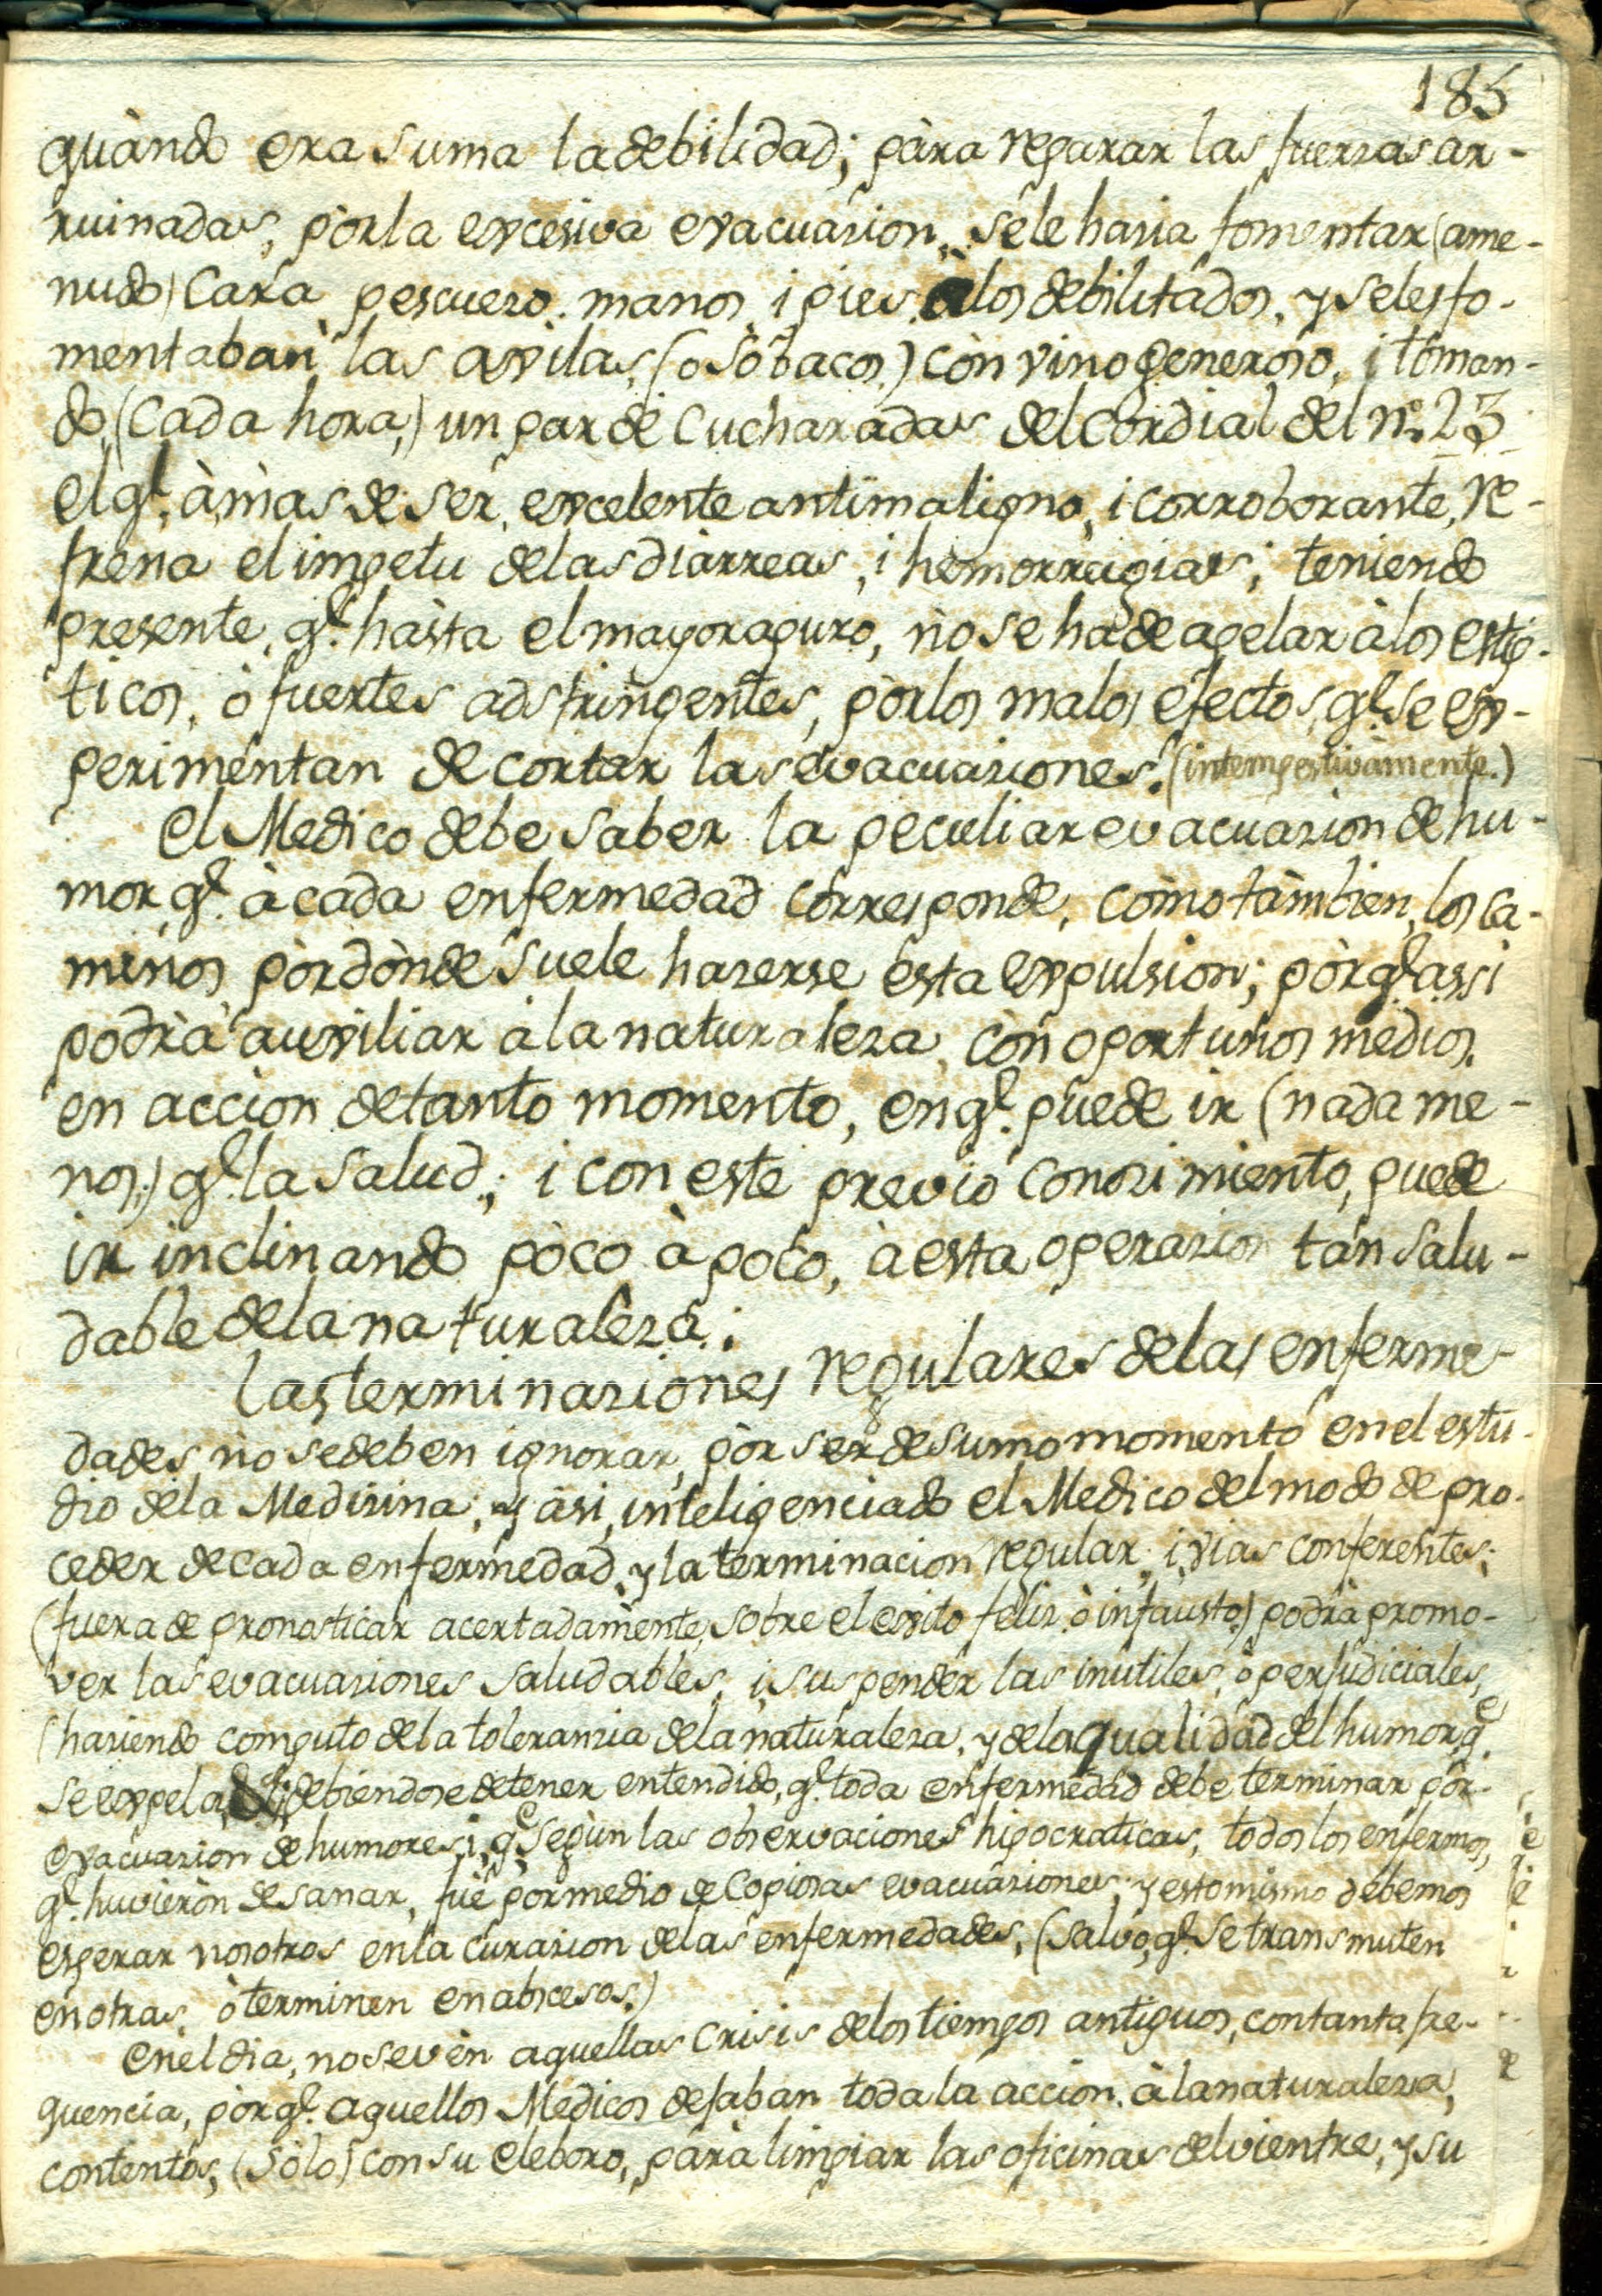 185
quàndo era suma la debilidad; pàra reparar las fuerzas ar-
ruinadas, pòr la excesiva evacuazion, se le hazia fomentar (ame-
nudo) Cara, pescuezo, manos, i pies à los debilitados, y se les fo-
mentaban las axilas, (o Sòbacos) còn vino generoso, i tòman-
do, (Cada hora,) un par de Cucharadas del Còrdial del nº. 23
el ql. àmàs de ser, excelente antimaligno, i corroborante, re-
frena el impetu de las diàrreas, i hemorragias; teniendo
presente, ql. hàsta el mayor apuro, nò se ha de apelar à los estip-
ticos, ò fuertes adstringentes, pòr los malos efectos, ql. se ex-
perimentan de cortar las evacuaziones. (intempestivàmente.)
El Medico debe saber la peculiar evacuazion de hu-
mor ql. à cada enfermedad corresponde, còmo tàmbien, los ca-
minos pòr dònde suele hazerse esta expulsion; pòrql. assi
podrà auxiliar à la naturaleza, còn oportunos medios,
en accion de tanto momento, en ql. puede ir (nada me-
nos;) ql. la Salud; i con este previo Conozimiento, puede
ir inclinando pòco à poco, à esta operazion tàn Salu-
dable de la naturaleza.
Las terminaziones regulares de las enferme-
dades nò se deben ignorar, pòr ser de sumo momento en el estu-
dio de la Medizina; y àsi, inteligenciado el Medico del modo de pro-
ceder de cada enfermedad, y la terminacion regular, i vias conferentes;
(fuera de pronosticar acertadamente, sobre el exito féliz, ò infausto) podrà promo-
ver las evacuaziones saludables, i suspender las inutiles, ò perjudiciales,
(haziendo computo de la toleranzia de la naturaleza, y de la qualidad del humor qe.
se expela; debiendose de tener entendido, ql. toda enfermedad debe terminar pòr
evacuazion de humores; i, qe. según las observaciones hipocraticas, todos los enfermos,
ql. huvieròn de sanar, fuè por medio de Copiosas evacuàziones; y esto mismo debemos
esperar nosotros en la curazion de las enfermedades, (salvo, ql. se transmuten
en otras, ò terminen en abscesos.)
En el dia, no se vèn aquellas Crisis de los tiempos antiguos, con tanta fre-
quencia, pòrql. aquellos Medicos dejaban toda la accion, à la naturaleza,
contentos, (sòlo) con su eleboro, pàra limpiar las oficinas del vientre, y su